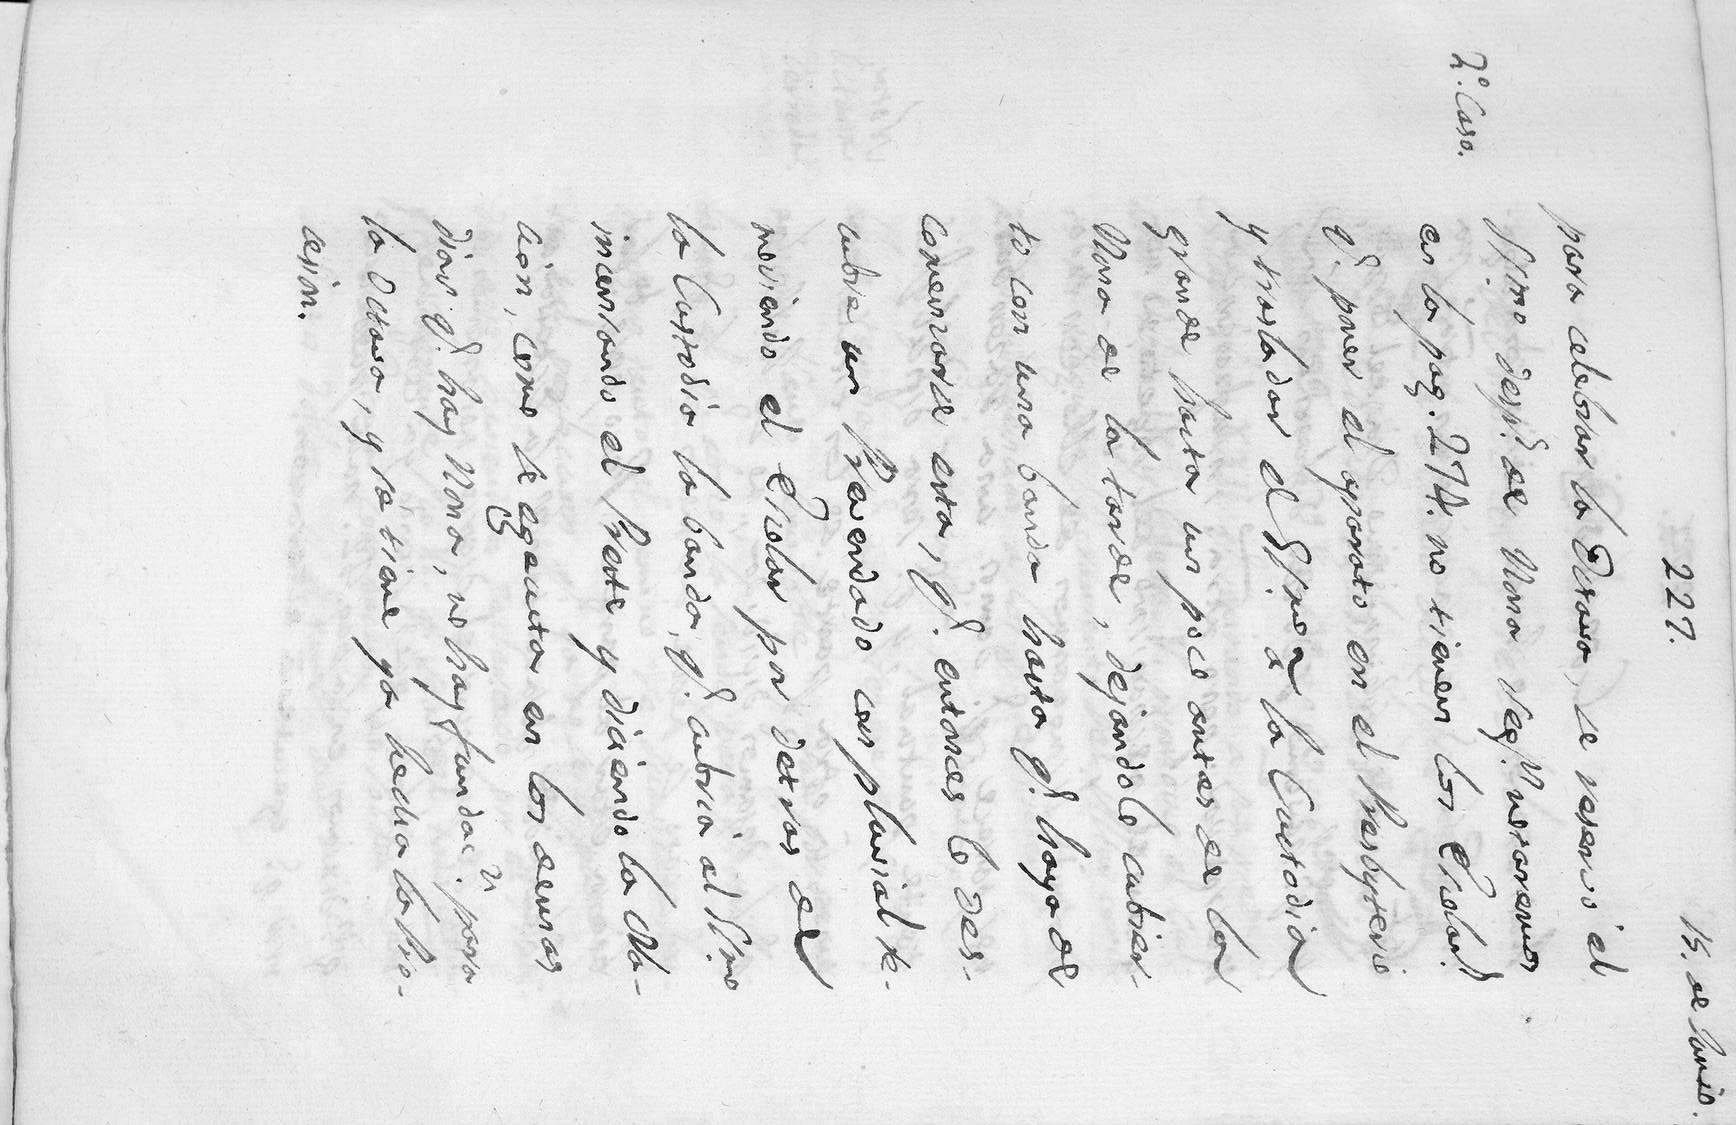 227.
15. de Junio.
para celebrar la Octava, se reservó el
SSmo desp.s de Nona seg.n notaremos
2.o Caso.
en la pag. 274. no tienen los Cholar.s
q.e poner el aparato en el Presbyterio
y trasladar el SSmo a la Custodia
grande hasta un poco antes de la
Nona de la tarde, dejandole cubier-
to con una banda hasta q.e haya de
comenzarse esta, q.e entonces le des-
cubre un Prevendado con pluvial re-
moviendo el Cholar por detras de
la Custodia la banda, q.e cubria al SSmo
incensando el Preste y diciendo la Ora-
cion, como se egecuta en los demas
dias q.e hay Nona, no hay fundac.n para
la Octava, y se tiene ya hecha la Pro-
cesion.